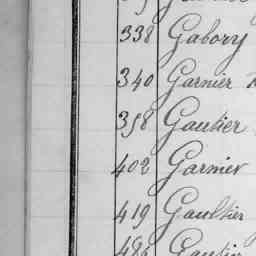 338 Gabory
340 Garnier
358 Gautier
402 Garnier
419 Gaultier
486 Gautier